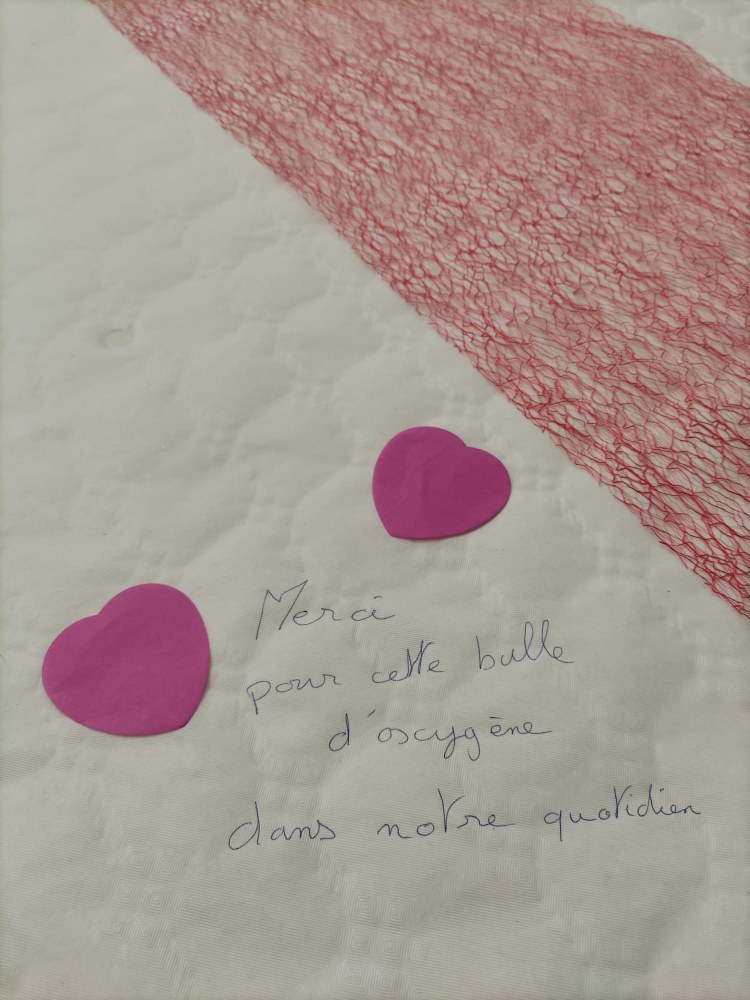 Merci
pour cette bulle
d'oscygène
dans notre quotidien